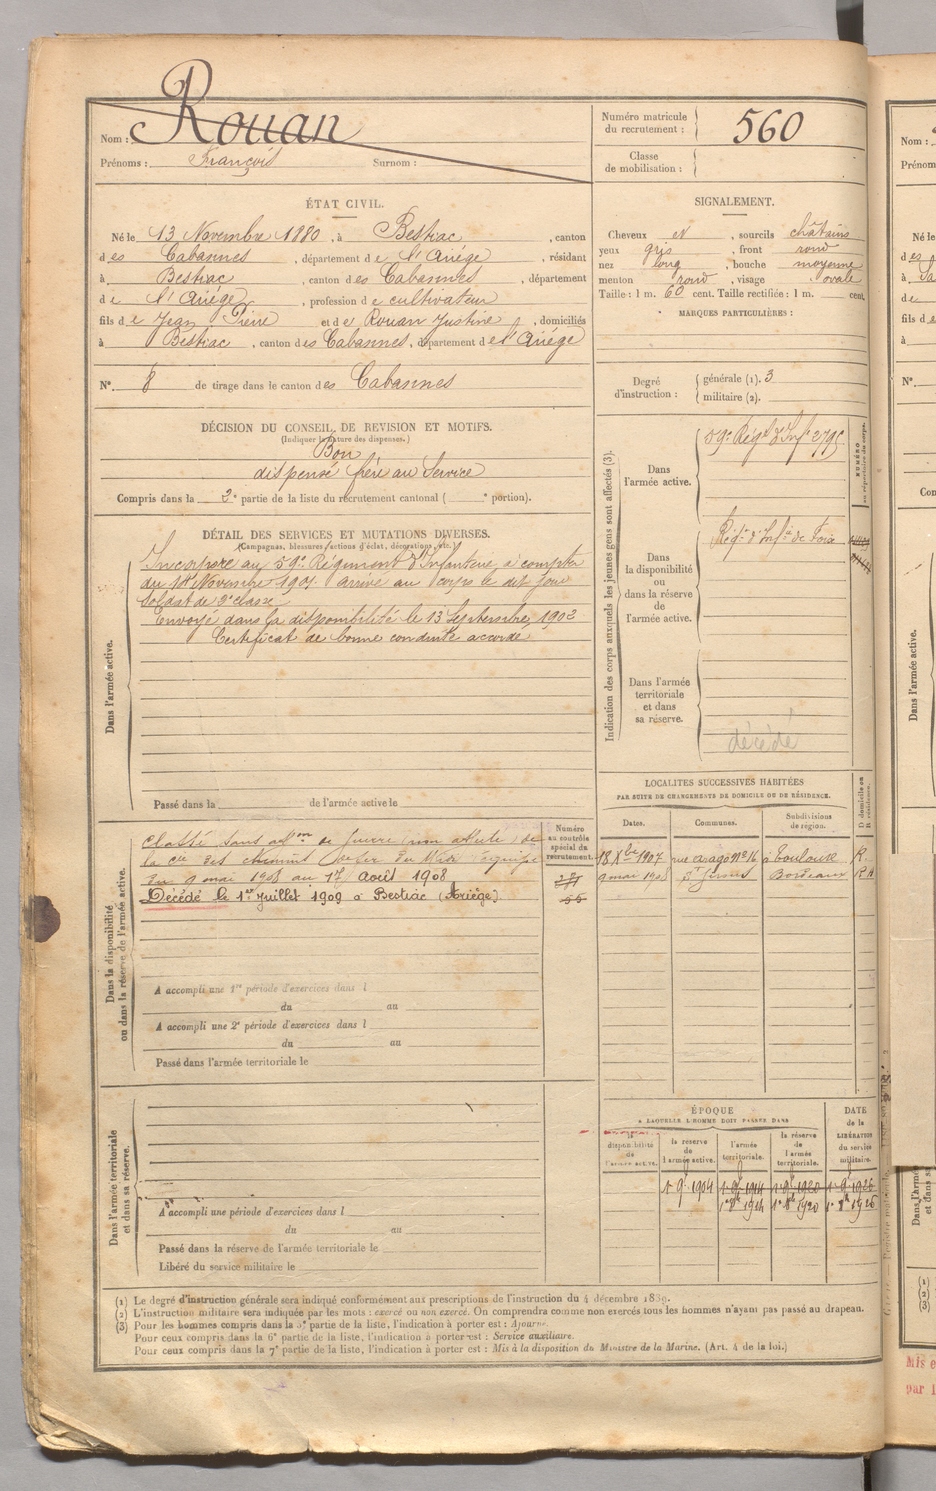 Nom : Rouan
Prénoms : François Surnom :
Numéro matricule du recrutement : 560
Classe de mobilisation :
ÉTAT CIVIL.
Né le 13 Novembre 1880, à Bestiac, canton
des Cabannes, département de l'Ariège, résidant
à Bestiac, canton des Cabannes, département
de l'Ariège, profession de cultivateur
fils de Jean Pierre et de Rouan Justine, domiciliés
à Bestiac, canton des Cabannes, département de l'Ariège
N° 8 de tirage dans le canton des Cabannes
SIGNALEMENT.
Cheveux et, sourcils châtains
yeux gris, front rond
nez long, bouche moyenne
menton rond, visage ovale
Taille : 1 m. 60 cent. Taille rectifiée : 1 m. cent.
MARQUES PARTICULIÈRES :
Degré d'instruction : générale (1). 3
militaire (2).
DÉCISION DU CONSEIL DE REVISION ET MOTIFS.
(Indiquer la nature des dispenses.)
Bon
dispensé frère au Service
Compris dans la 2e partie de la liste du recrutement cantonal ( e portion).
DÉTAIL DES SERVICES ET MUTATIONS DIVERSES.
(Campagnes, blessures, actions d'éclat, décorations, etc.)
Dans l'armée active.
Incorporé au 59e Régiment d'Infanterie à compter
du Novembre 1901 arrivé au corps le dit jour
Soldat de 2e classe
Envoyé dans la disponibilité le 13 Septembre 1902
Certificat de bonne conduite accordé
Passé dans la de l'armée active le
Indication des corps auxquels les jeunes gens sont affectés (3).
NUMÉRO au répertoire du corps.
Dans l'armée active.
59e Régt d'Infie
Dans la disponibilité ou dans la réserve de l'armée active.
Régt d'Infie de Foix
Dans l'armée territoriale et dans sa réserve.
décédé
LOCALITES SUCCESSIVES HABITÉES
PAR SUITE DE CHANGEMENTS DE DOMICILE OU DE RÉSIDENCE.
Dates. Communes. Subdivisions de région. D domicile ou R résidence.
18 Xbre 1907 rue arago N° 16 à Toulouse R
9 mai 1908 St Bordeaux R
Dans la disponibilité ou dans la réserve de l'armée active.
Numéro au contrôle spécial du recrutement.
Classé sans affon de guerre (non affecté) de
la cie des chemins de fer du Midi
du 9 mai 1908 au 17 Août 1908
Décédé le 1er Juillet 1909 à Bestiac (Ariège).
A accompli une 1re période d'exercices dans l
du au
A accompli une 2e période d'exercices dans l
du au
Passé dans l'armée territoriale le
Dans l'armée territoriale et dans sa réserve.
A accompli une période d'exercices dans l
du au
Passé dans la réserve de l'armée territoriale le
Libéré du service militaire le
ÉPOQUE
A LAQUELLE L'HOMME DOIT PASSER DANS
DATE de la LIBÉRATION du service militaire.
la disponibilité de l'armée active. la réserve de l'armée active. l'armée territoriale. la réserve de l'armée territoriale.
1904 1914 1920 1926
1914 1920 1926
(1) Le degré d'instruction générale sera indiqué conformément aux prescriptions de l'instruction du 4 décembre 1889.
(2) L'instruction militaire sera indiquée par les mots : exercé ou non exercé. On comprendra comme non exercés tous les hommes n'ayant pas passé au drapeau.
(3) Pour les hommes compris dans la 5e partie de la liste, l'indication à porter est : Ajourné.
Pour ceux compris dans la 6e partie de la liste, l'indication à porter est : Service auxiliaire.
Pour ceux compris dans la 7e partie de la liste, l'indication à porter est : Mis à la disposition du Ministre de la Marine. (Art. 4 de la loi.)